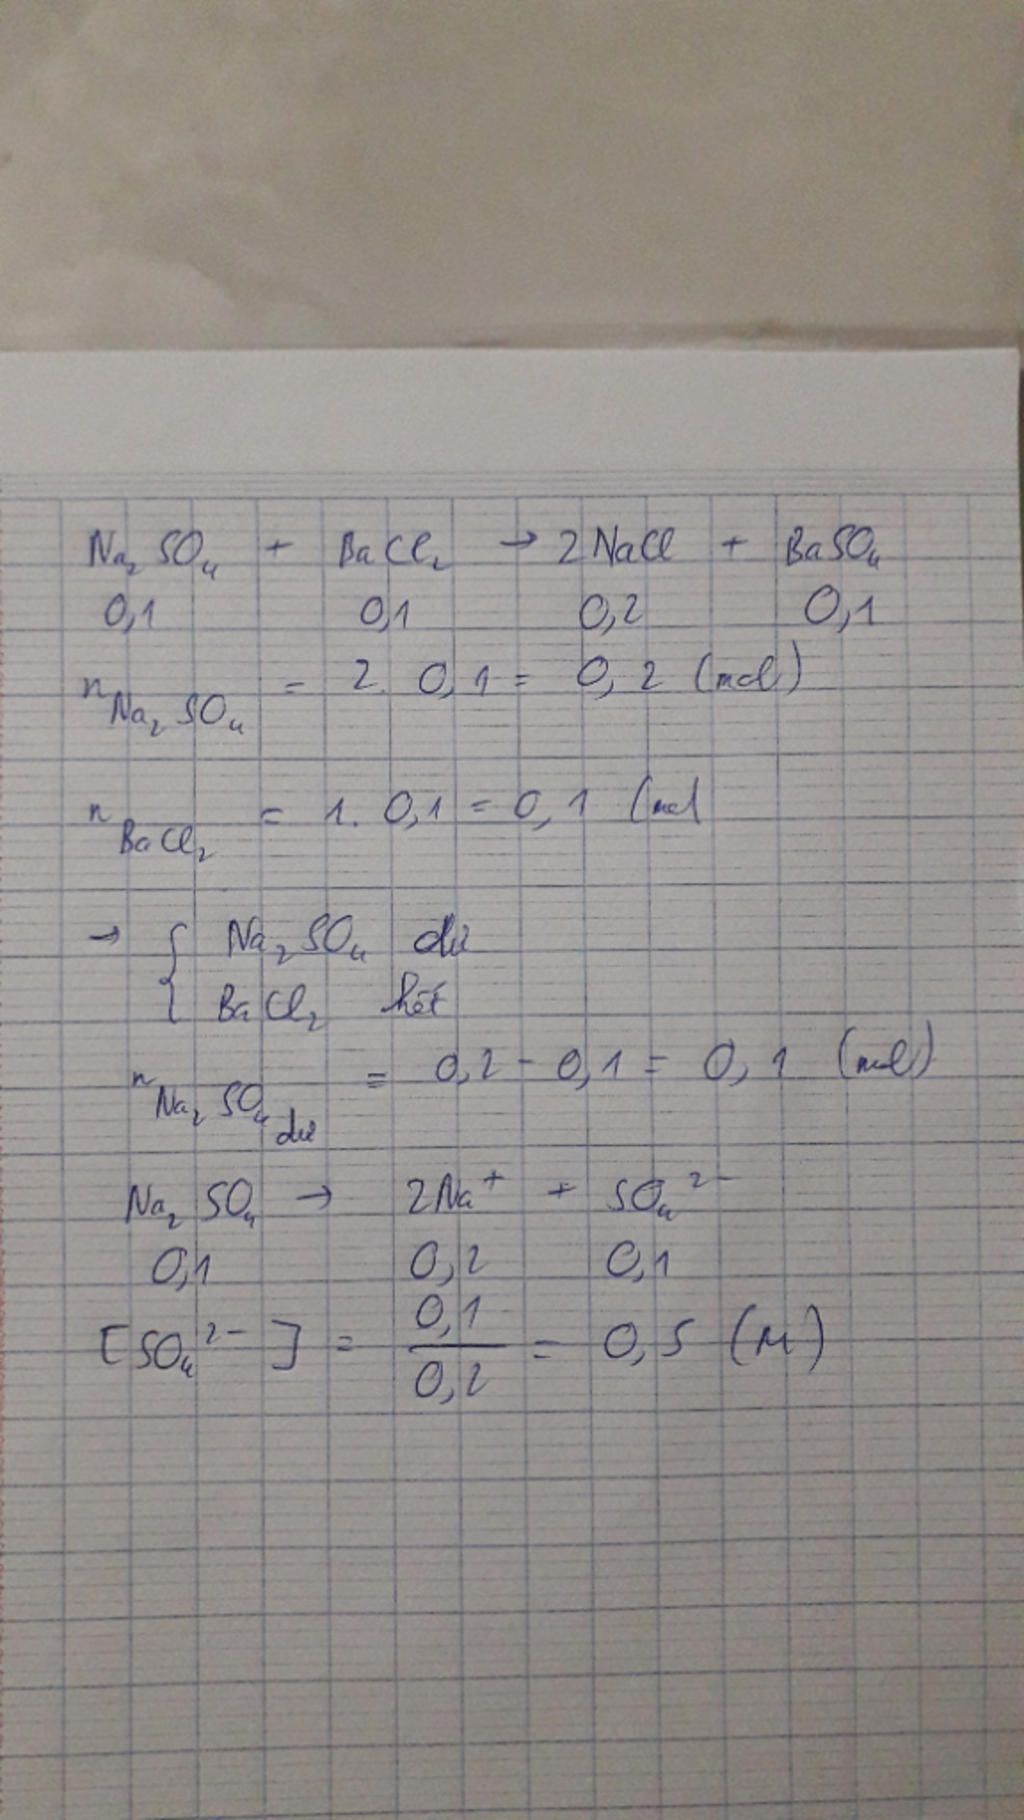 Na₂SO₄ + BaCl₂ → 2NaCl + BaSO₄
0,1 0,1 0,2 0,1
nNa₂SO₄ = 2. 0,1 = 0,2 (mol)
nBaCl₂ = 1. 0,1 = 0,1 (mol
→ { Na₂SO₄ dư
BaCl₂ hết
nNa₂SO₄ dư = 0,2 - 0,1 = 0,1 (mol)
Na₂SO₄ → 2Na⁺ + SO₄²⁻
0,1 0,2 0,1
[SO₄²⁻] = 0,1/0,2 = 0,5 (M)